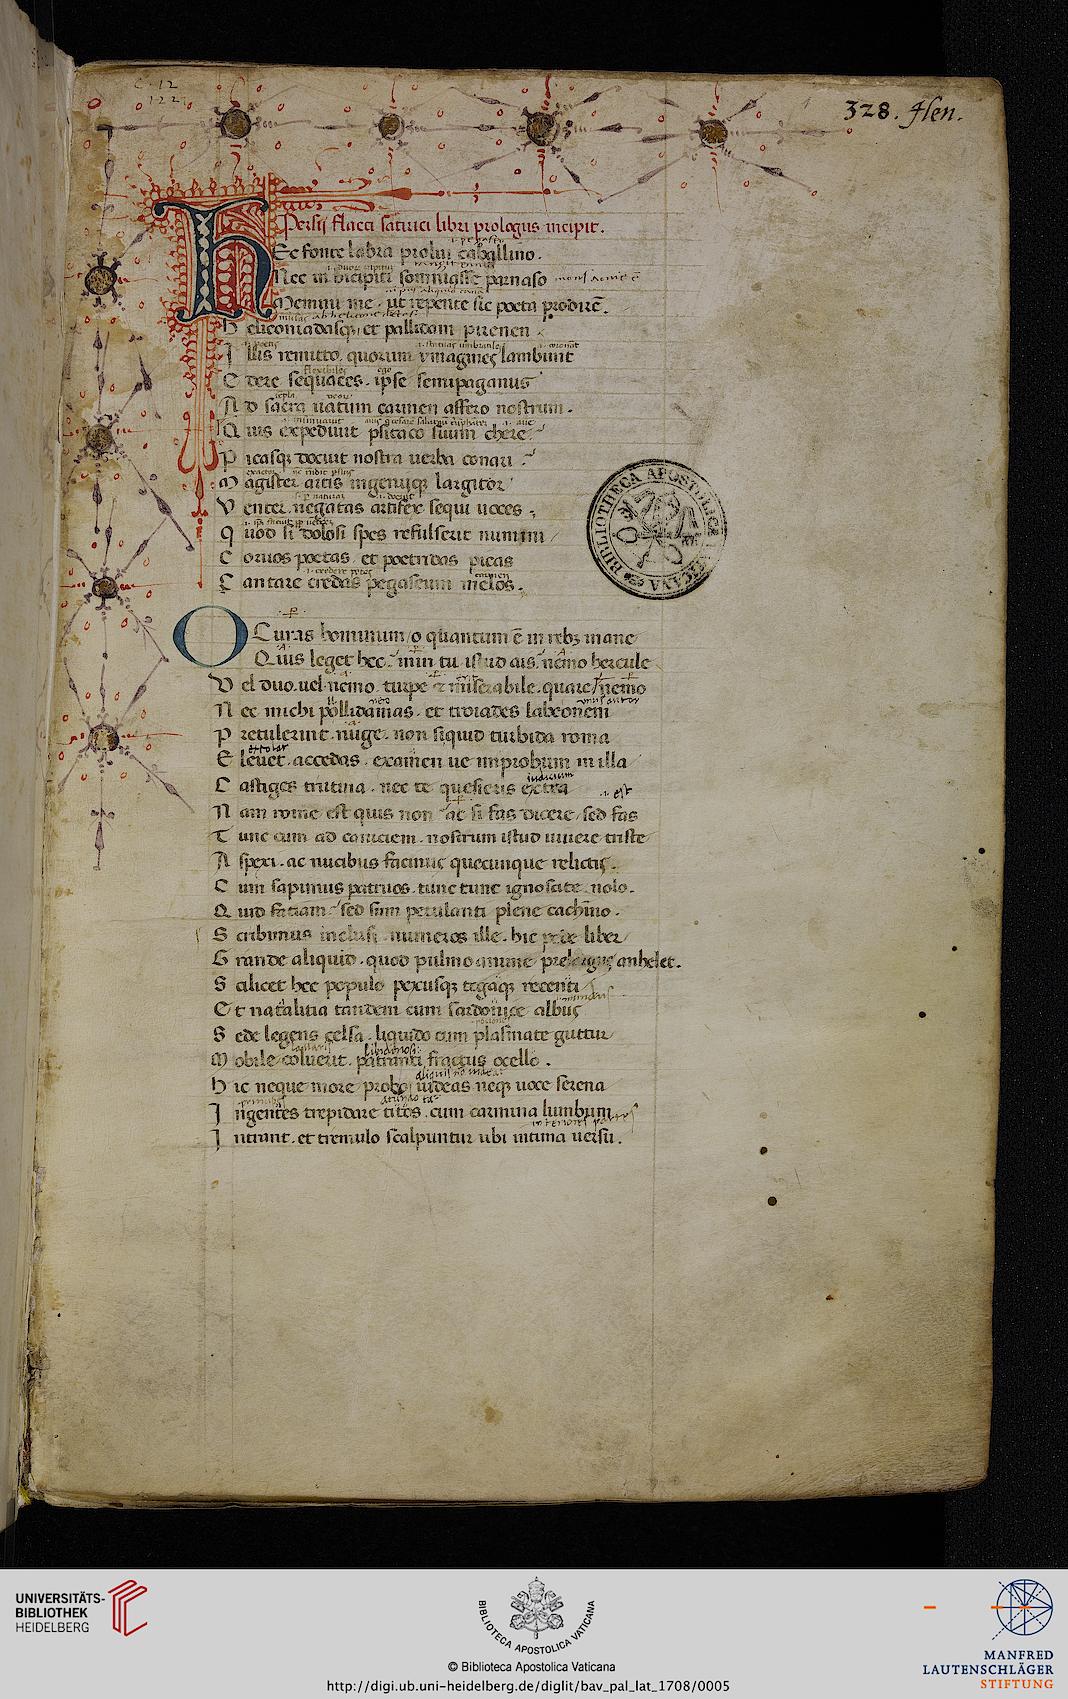 C. 12
122
328. Hen.
Persij flacci satirici libri prologus incipit.
HEc fonte labra prolui caballino.
Nec in bicipiti somniasse parnaso
Memini me. ut repente sic poeta prodirē.
Heliconiadasq; et pallidam pirenen
Illis remitto. quorum ymagines lambunt
Edere sequaces. ipse semipaganus
Ad sacra uatum carmen affero nostrum.
Quis expediuit psitaco suum chere.
Picasq; docuit nostra uerba conari
Magister artis ingenijq; largitor
Venter. negatas artifex sequi uoces
Quod si dolosi spes refulserit nummi
Coruos poetas. et poetridas picas
Cantare credas pegaseum melos.
O Curas hominum / o quantum ē in reb; inane
Quis leget hec. min tu istud ais. nemo hercule
Vel duo. uel nemo. turpe et miserabile. quare / nemo
Nec michi pollidamas. et troiades labeonem
Pretulerint. nuge. non siquid turbida roma
Eleuet. accedas. examen ue improbum in illa
Castiges trutina. nec te quesieris extra
Nam rome est quis non ac si fas dicere / sed fas
Tunc cum ad caniciem. nostrum istud uiuere triste
Aspexi. ac nucibus facimus quecunque relictis.
Cum sapimus patruos. tunc tunc ignoscite. nolo.
Quid faciam. sed sum petulanti plene cachino.
Scribimus inclusi. numeros ille. hic pede liber
Grande aliquid. quod pulmo anime prelargus anhelet.
Scilicet hec populo pexusq; togaq; recenti
Et natalitia tandem cum sardonice albus
Sede legens celsa. liquido cum plasmate guttur
Mobile coluerit. patranti fractus ocello.
Hic neque more probo uideas neq; uoce serena
Ingentes trepidare titos. cum carmina lumbum
Intrant. et tremulo scalpuntur ubi intima uersu.
BIBLIOTHECA APOSTOLICA VATICANA
UNIVERSITÄTS-
BIBLIOTHEK
HEIDELBERG
BIBLIOTECA APOSTOLICA VATICANA
© Biblioteca Apostolica Vaticana
http://digi.ub.uni-heidelberg.de/diglit/bav_pal_lat_1708/0005
MANFRED
LAUTENSCHLÄGER
STIFTUNG